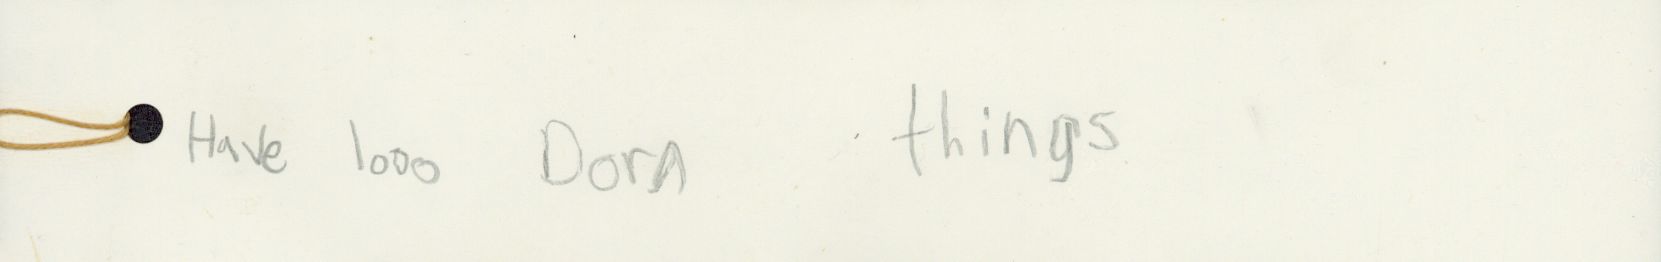 Have 1000 Dora things